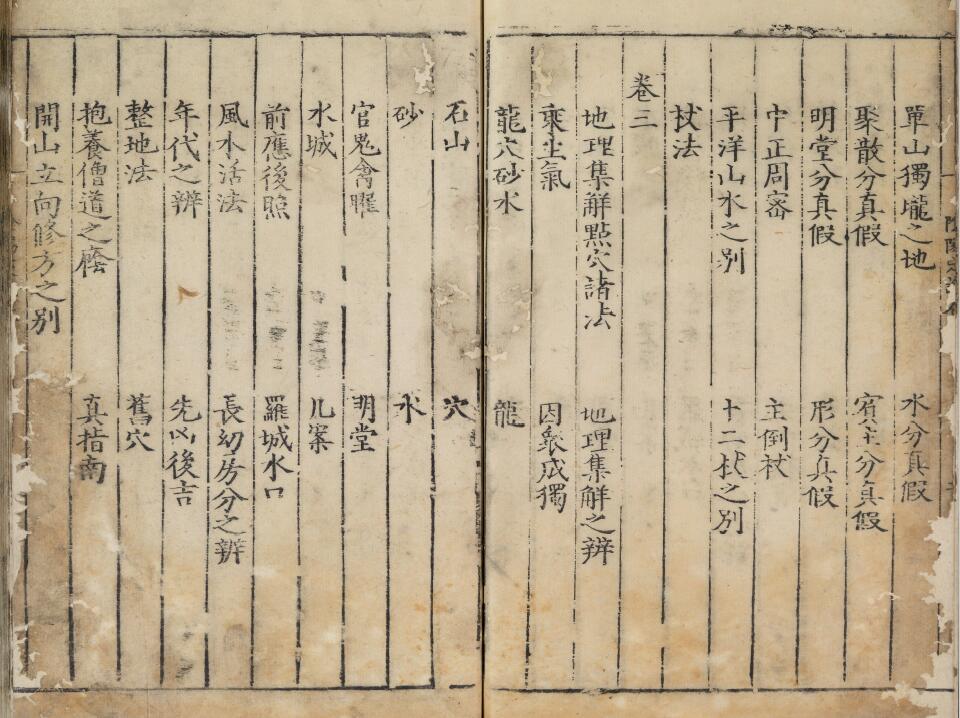 單山獨壠之地 水分真假
聚散分真假 賓主分真假
明堂分真假 形分真假
中正周密 主倒杖
平洋山水之别 十二杖之别
杖法
卷三
地理集解點穴諸法 地理集解之辨
乘生氣 因衆成獨
龍穴砂水 龍
石山 穴
砂 水
官鬼禽曜 明堂
水城 几案
前應後照 羅城水口
風水活法 長幼房分之辨
年代之辨 先凶後吉
整地法 舊穴
抱養僧道之廕 真指南
開山立向修方之别